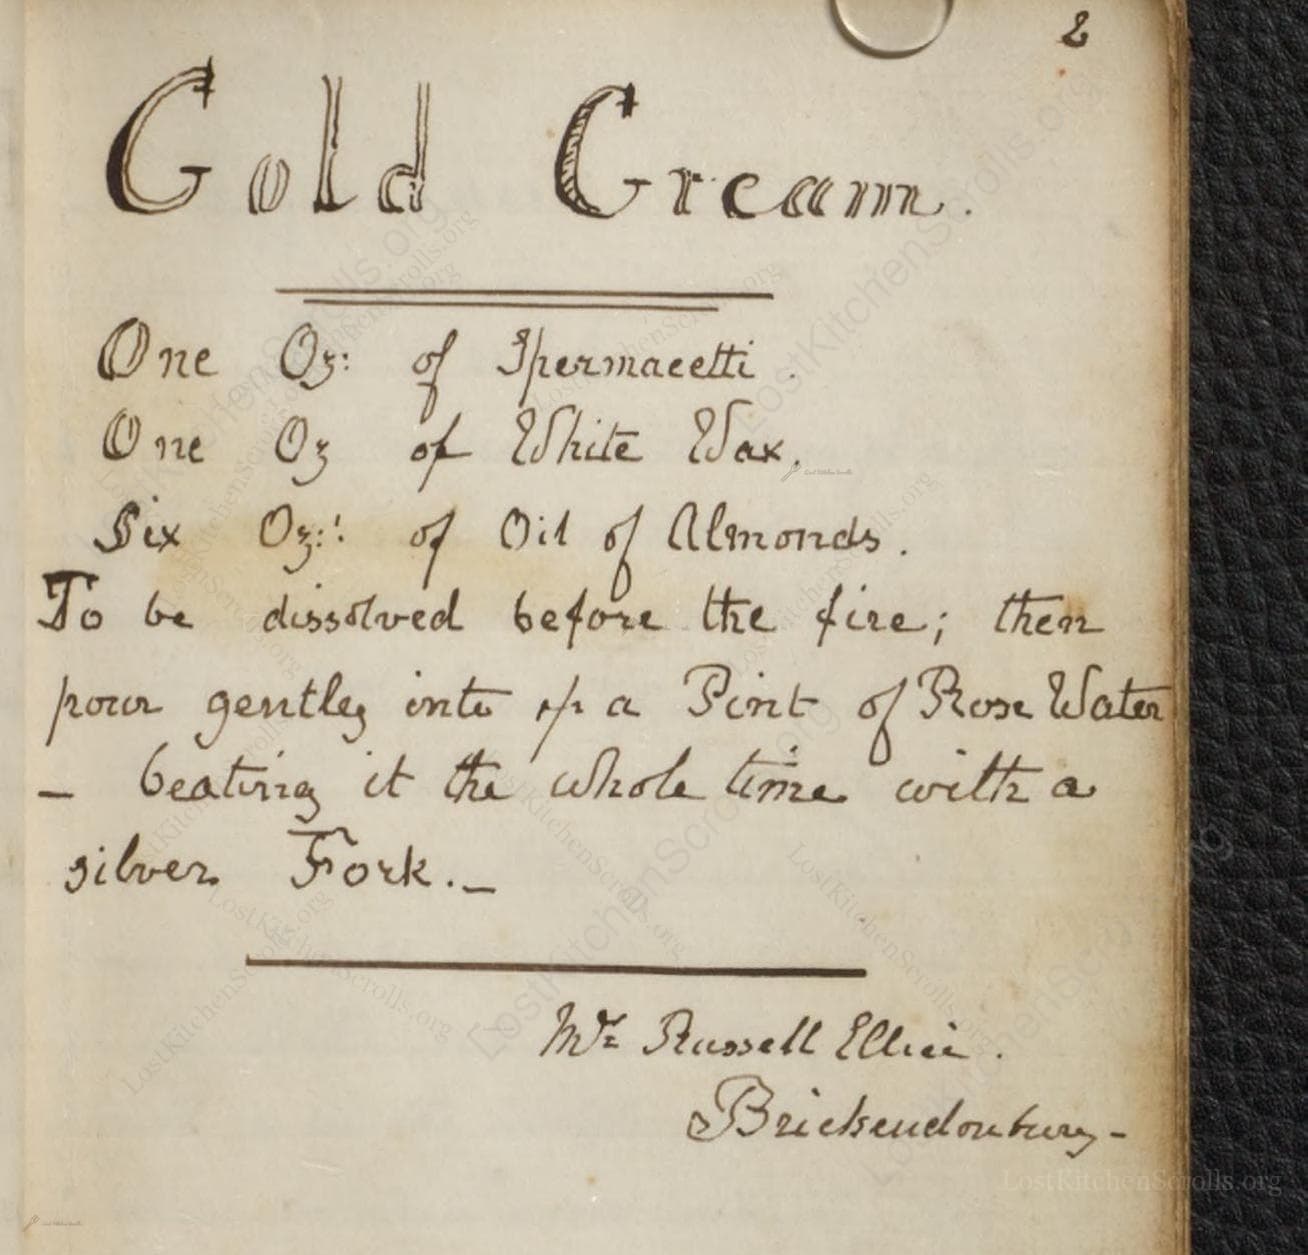 2
Cold Cream.
One Oz: of Spermacetti.
One Oz of White Wax.
Six Oz:s of Oil of Almonds.
To be dissolved before the fire; then
pour gently into a Pint of Rose Water
– beating it the whole time with a
silver Fork. –
Mrs Russell Ellice.
Brickendonbury –
LostKitchenScrolls.org